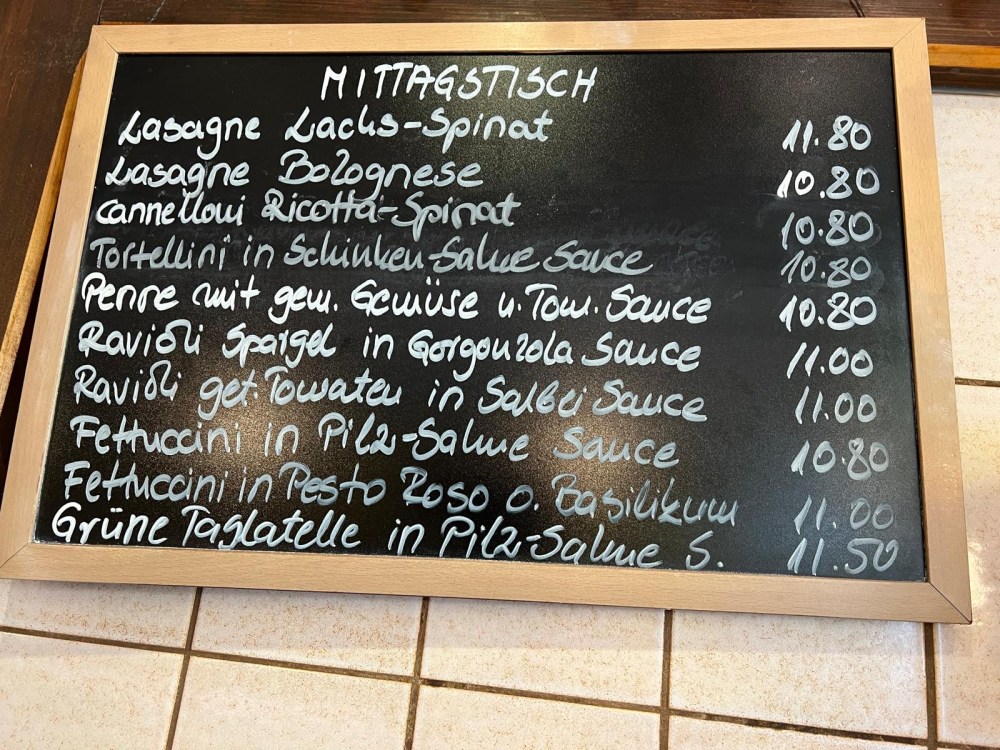 MITTAGSTISCH
Lasagne Lachs-Spinat 11.80
Lasagne Bolognese 10.80
Cannelloni Ricotta-Spinat 10.80
Tortellini in Schinken-Sahne Sauce 10.80
Penne mit gem. Gemüse u. Tom. Sauce 10.80
Ravioli Spargel in Gorgonzola Sauce 11.00
Ravioli get. Tomaten in Salbei Sauce 11.00
Fettuccini in Pilz-Sahne Sauce 10.80
Fettuccini in Pesto Roso o. Basilikum 11.00
Grüne Taglatelle in Pilz-Sahne S. 11.50